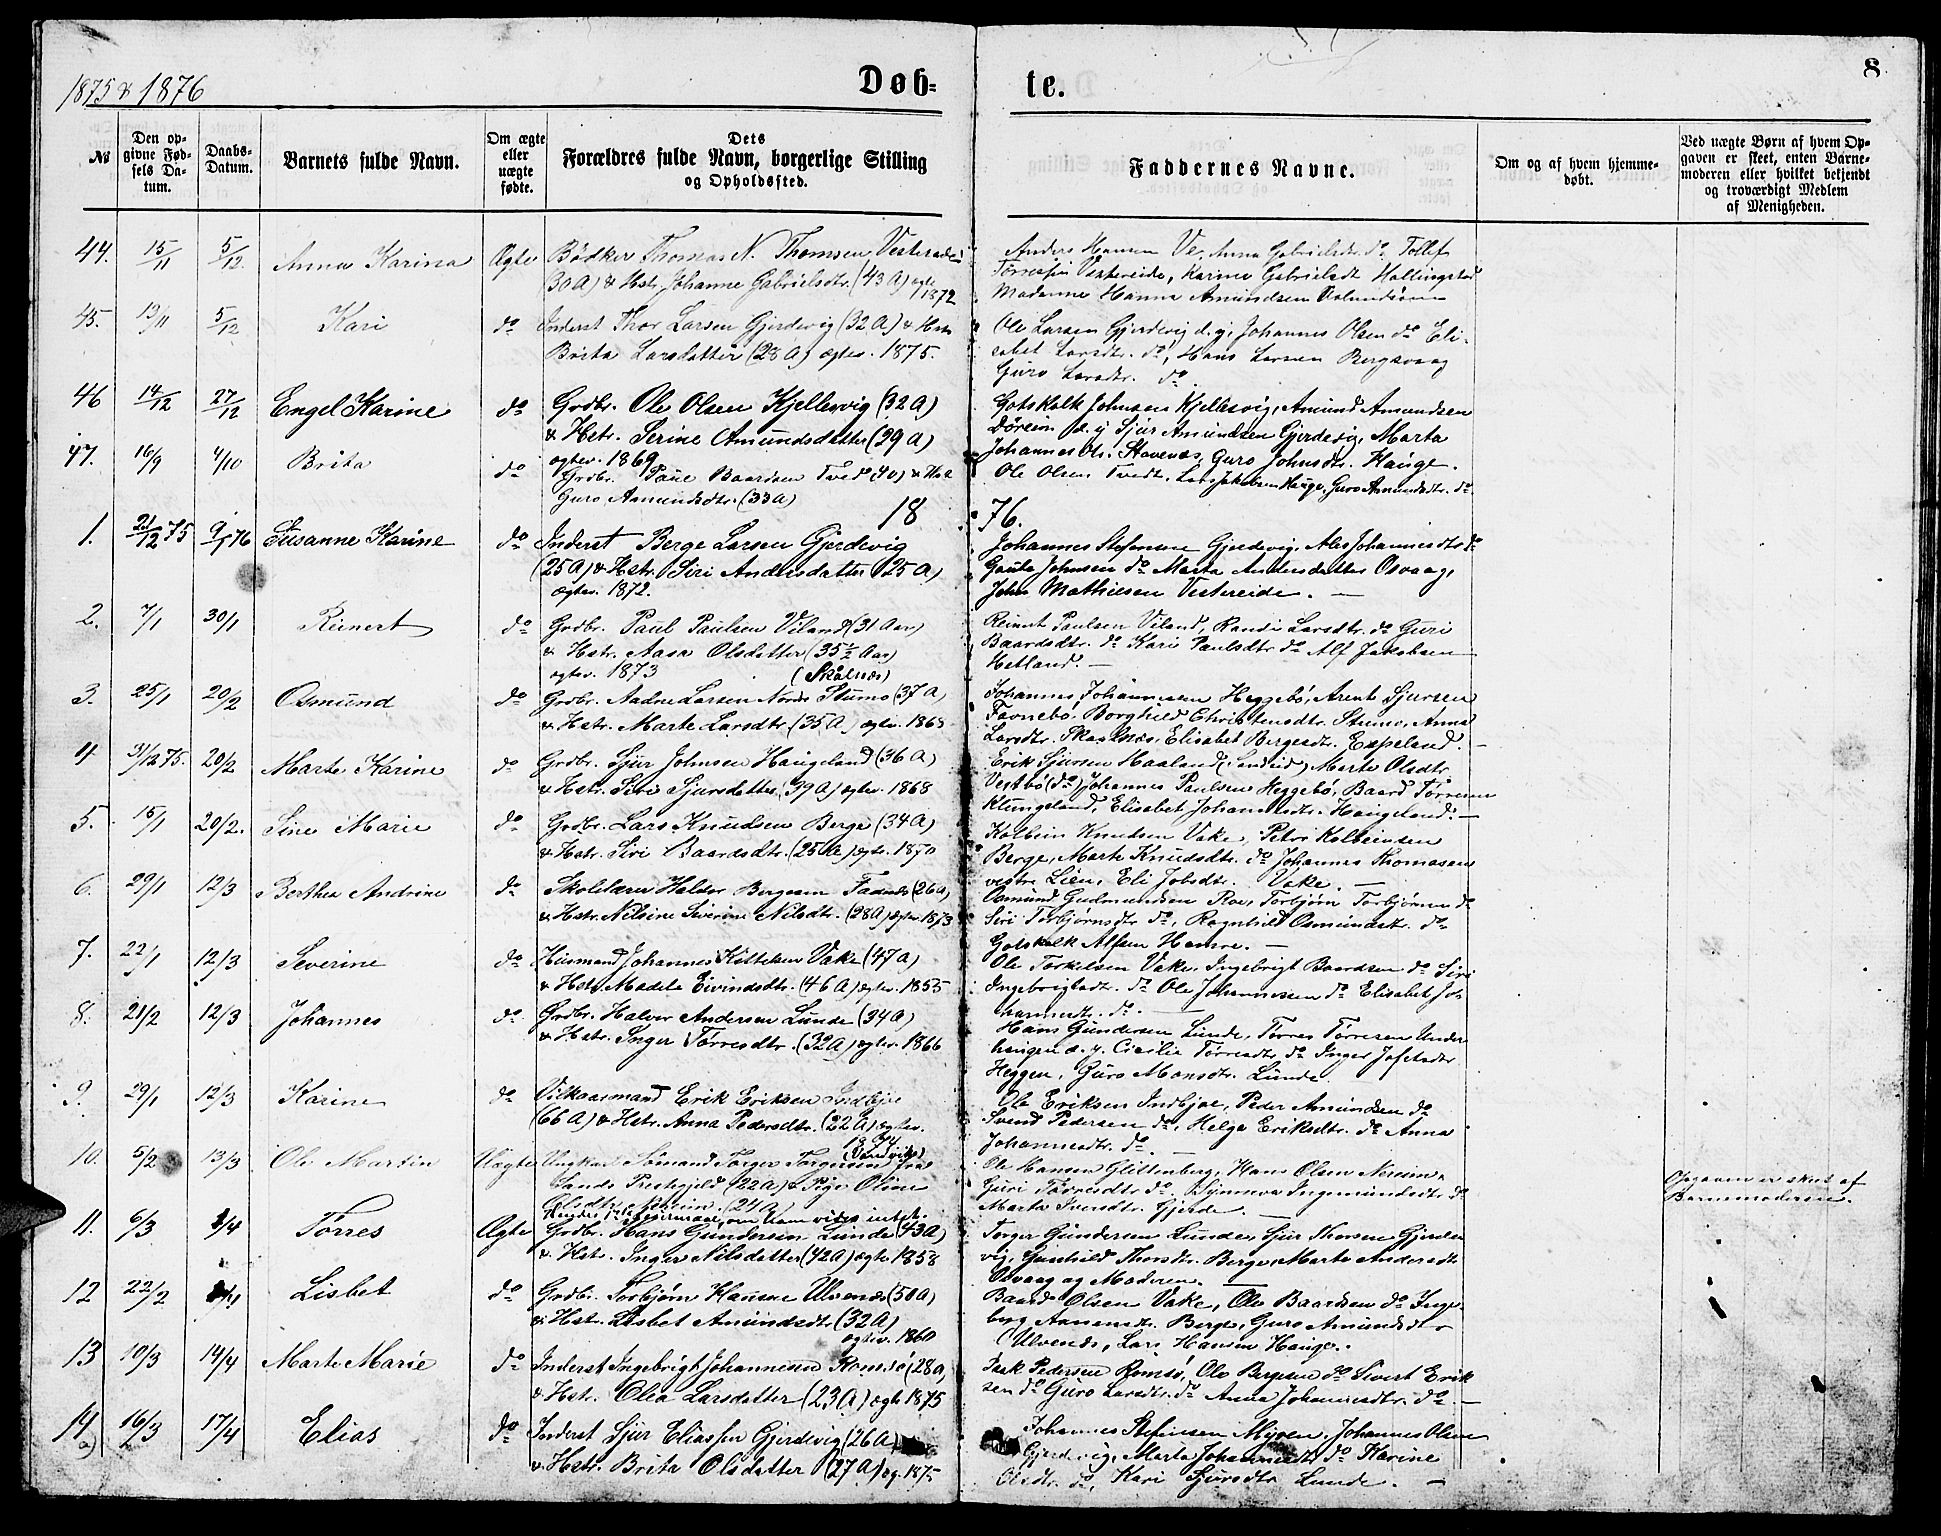 1875 & 1876
Døb-
te.
8
No
Den op-
givne Fød-
sels Da-
tum.
Daabs-
Datum.
Barnets fulde Navn.
Om ægte
eller
uægte
fødte.
Dets
Forældres fulde Navn, borgerlige Stilling
og Opholdssted.
Faddernes Navne.
Om og af hvem hjemme-
døbt.
Ved uægte Børn af hvem Op-
gaven er skeet, enten Barne-
moderen eller hvilket bekjendt
og troværdigt Medlem
af Menigheden.
44. 15/11 5/12. Anna Karina Ægte Bødker Thomas N. Thomsen
(30 A) & Hstr. Johanne Gabrielsdtr. (43 A) ægte
1872
Anders Hansen Ve, Anna Gabrielsdtr. do Tollef
Vestereide, Karina Gabrielsdt
Madamme Hanna Amundsen
45. 5/12 Kari do Inderst Thor Larsen Gjerdevig (32 A) & Hstr
Brita Larsdatter (28 A) ægtev. 1875.
Ole Larsen Gjerdevig d.y, Johannes Olsen do Eli-
sabet Larsdtr. do, Hans Larsen
Guro Larsdtr. do
46 14/12 27/12 Engel Karine do Grdbr. Ole Olsen Kjellesvig (32 A)
& Hstr. Serine Amundsdatter (29 A)
ægtev. 1869
Gotskalk Johnsen Kjellesvig, Amund Amundsen
d. y Sjur Amundsen Gjerdevig, Marta
Johannes Ols. Stavenæs, Guro Johnsdtr. Hauge.
47. 16/9 4/10 Brita do Grdbr. Baardsen Tved (40) & Hstr
Guro Amundsdtr. (33 A)
Ole Olsen Tvedt, Lars Jakobsen Hauge, Guro Amundsdtr. do
18
76.
1. 21/12 75 9/1 76 Susanne Karine do Inderst Berge Larsen Gjerdevig
(25 A) & Hstr. Siri Andersdatter (25 A)
ægtev. 1872.
Johannes Stefensen Gjerdevig, Ales Johannesdtr do
Gaute Johnsen do Marta Andersdatter Osvaag,
John Mathiesen Vestereide. —
2. 7/1 30/1 Reinert do Grdbr. Paul Paulsen Viland (31 Aar)
& Hstr. Aasa Olsdatter (35 ½ Aar)
ægtev. 1873
Reinert Paulsen Viland, Randi Larsdtr. do Guri
Baardsdtr. do Kari Paulsdtr do Alf Jakobsen
Hetland. —
3. 25/1 20/2 Osmund do Grdbr. Aadne Larsen Nordre Stumo (37 A)
(Skålnæs)
& Hstr. Marte Larsdtr. (35 A) ægtev. 1868
Johannes Johannesen Heggebø, Arent Sjursen
Favnebø, Borghild Christensdtr. Stumo, Anna
Larsdtr. Skaalnæs, Elisabet Bergesdtr. Espeland. —
4 31/12 75. 20/2 Marte Karine do Grdbr. Sjur Johnsen Haugeland (36 A)
& Hstr. Siri Sjursdatter (39 A) ægtev. 1868
Erik Sjursen Haaland (Sandeid) Marte Olsdtr
Vestbø (do) Johannes Paulsen Heggebø, Baard Tørresen
Klungeland, Elisabet Johannesdtr. Haugeland. —
5. 15/1 20/2. Sine Marie do Grdbr. Lars Knudsen Berge (34 A)
& Hstr. Siri Baardsdtr. (25 A) ægtv. 1870
Kolbein Knudsen Vake, Peter Kolbeinsen
Berge, Marte Knudsdtr. do Johannes Thomasen
vestre Lien, Eli Jobsdt. Vake. —
6. 29/1 12/3 Berthea Andrine do Skolelærer Haldor Bergesen (26 A)
& Hstr. Nilsine Severine Nilsdtr. (28 A) ægtev 1873
Osmund Gudmundsen Roe, Torbjørn Torbjørnsen do
Siri Torbjørnsdtr do, Ragnhild Osmundsdtr. do
Gotskalk Alfsen Hamre. —
7. 22/1 12/3 Severine do Husmand Johannes Vake (47 A)
& Hstr. Madela Eivindsdtr. (46 A) ægtev. 1855
Ole Torkelsen Vake, Ingebrigt Baardsen do Siri
Ingebrigtsdtr. do Ole Johannesen do Elisabet Jo-
hannesdt. do. —
8. 21/2 12/3 Johannes do Grdbr. Halvor Andersen Lunde (34 A)
& Hstr. Inger Tørresdtr. (32 A) ægtev. 1866
Hans Gundersen Lunde, Tørres Tørresen Under-
haugen d. y. Cicilie Tørresdtr do Inger
Heggen, Guro Monsdtr. Lunde.
9. 29/1 12/3 Karine do Vilkaarsmand Erik Eriksen Indbjoe
(66 A) & Hstr. Anna Pedersdtr. (22 A) ægtev.
1874
Ole Eriksen Indbjoe, Peder Amundsen do
Svend Pedersen do, Helga Eriksdtr. do Anna
Johannesdtr. do —
10. 5/2 13/3 Ole Martin Uægte Ungkarl Sømand Torger Torgersen fra
(Sandvig)
Sands Prestegjeld (22 A) & Pige Oline
(24 A)
Ole Hansen Glittenberg, Hans Olsen
Guri Tørresdtr do. Synneva Ingemundsdtr. do
Marta Svendsdtr. Gjerde.
Opgaven er skeet af
Barnemoderen.
11. 6/3 2/4 Tørres Ægte Grdbr. Hans Gundersen Lunde (43 A)
& Hst. Inger Nilsdatter (42 A) ægtv 1858
Torger Gundersen Lunde, Sjur Thorsen Gjerde-
vig, Gunhild Thorsdtr. Berge, Marte Andersdtr
Osvaag og Moderen. —
12 22/2 Lisbet do Grdbr. Torbjørn Hansen Ulvenæs (50 A)
& Hstr. Lisbet Amundsdtr (32 A)
ægtev. 1860
Baard Olsen Vake, Ole Baardsen do Inge-
borg Berge, Guro Amundsdtr
Ulvenæs, Lars Hansen Hauge. -
13 10/3 14/4 Marte Marie do Inderst Ingebrigt Johannesen Romsø (28 A)
& Hstr. Olea Larsdatter (23 A) ægte 1875
Isak Pedersen Romsø, Ole Bergesen do Sivert Erik
sen do Guro Larsdtr. do Anna Johannesdtr. do —
14 a) 16/3 17/4 Elias do Inderst Sjur Eliassen Gjerdevig (26 A)
& Hstr. Brita Olsdatter (27 A) æg. 1875
Johannes Stefensen Myren, Johannes Olsen
Gjerdevig, Marta Johannesdt do Karine
Olsdtr. do, Kari Sjursdtr Lunde. —